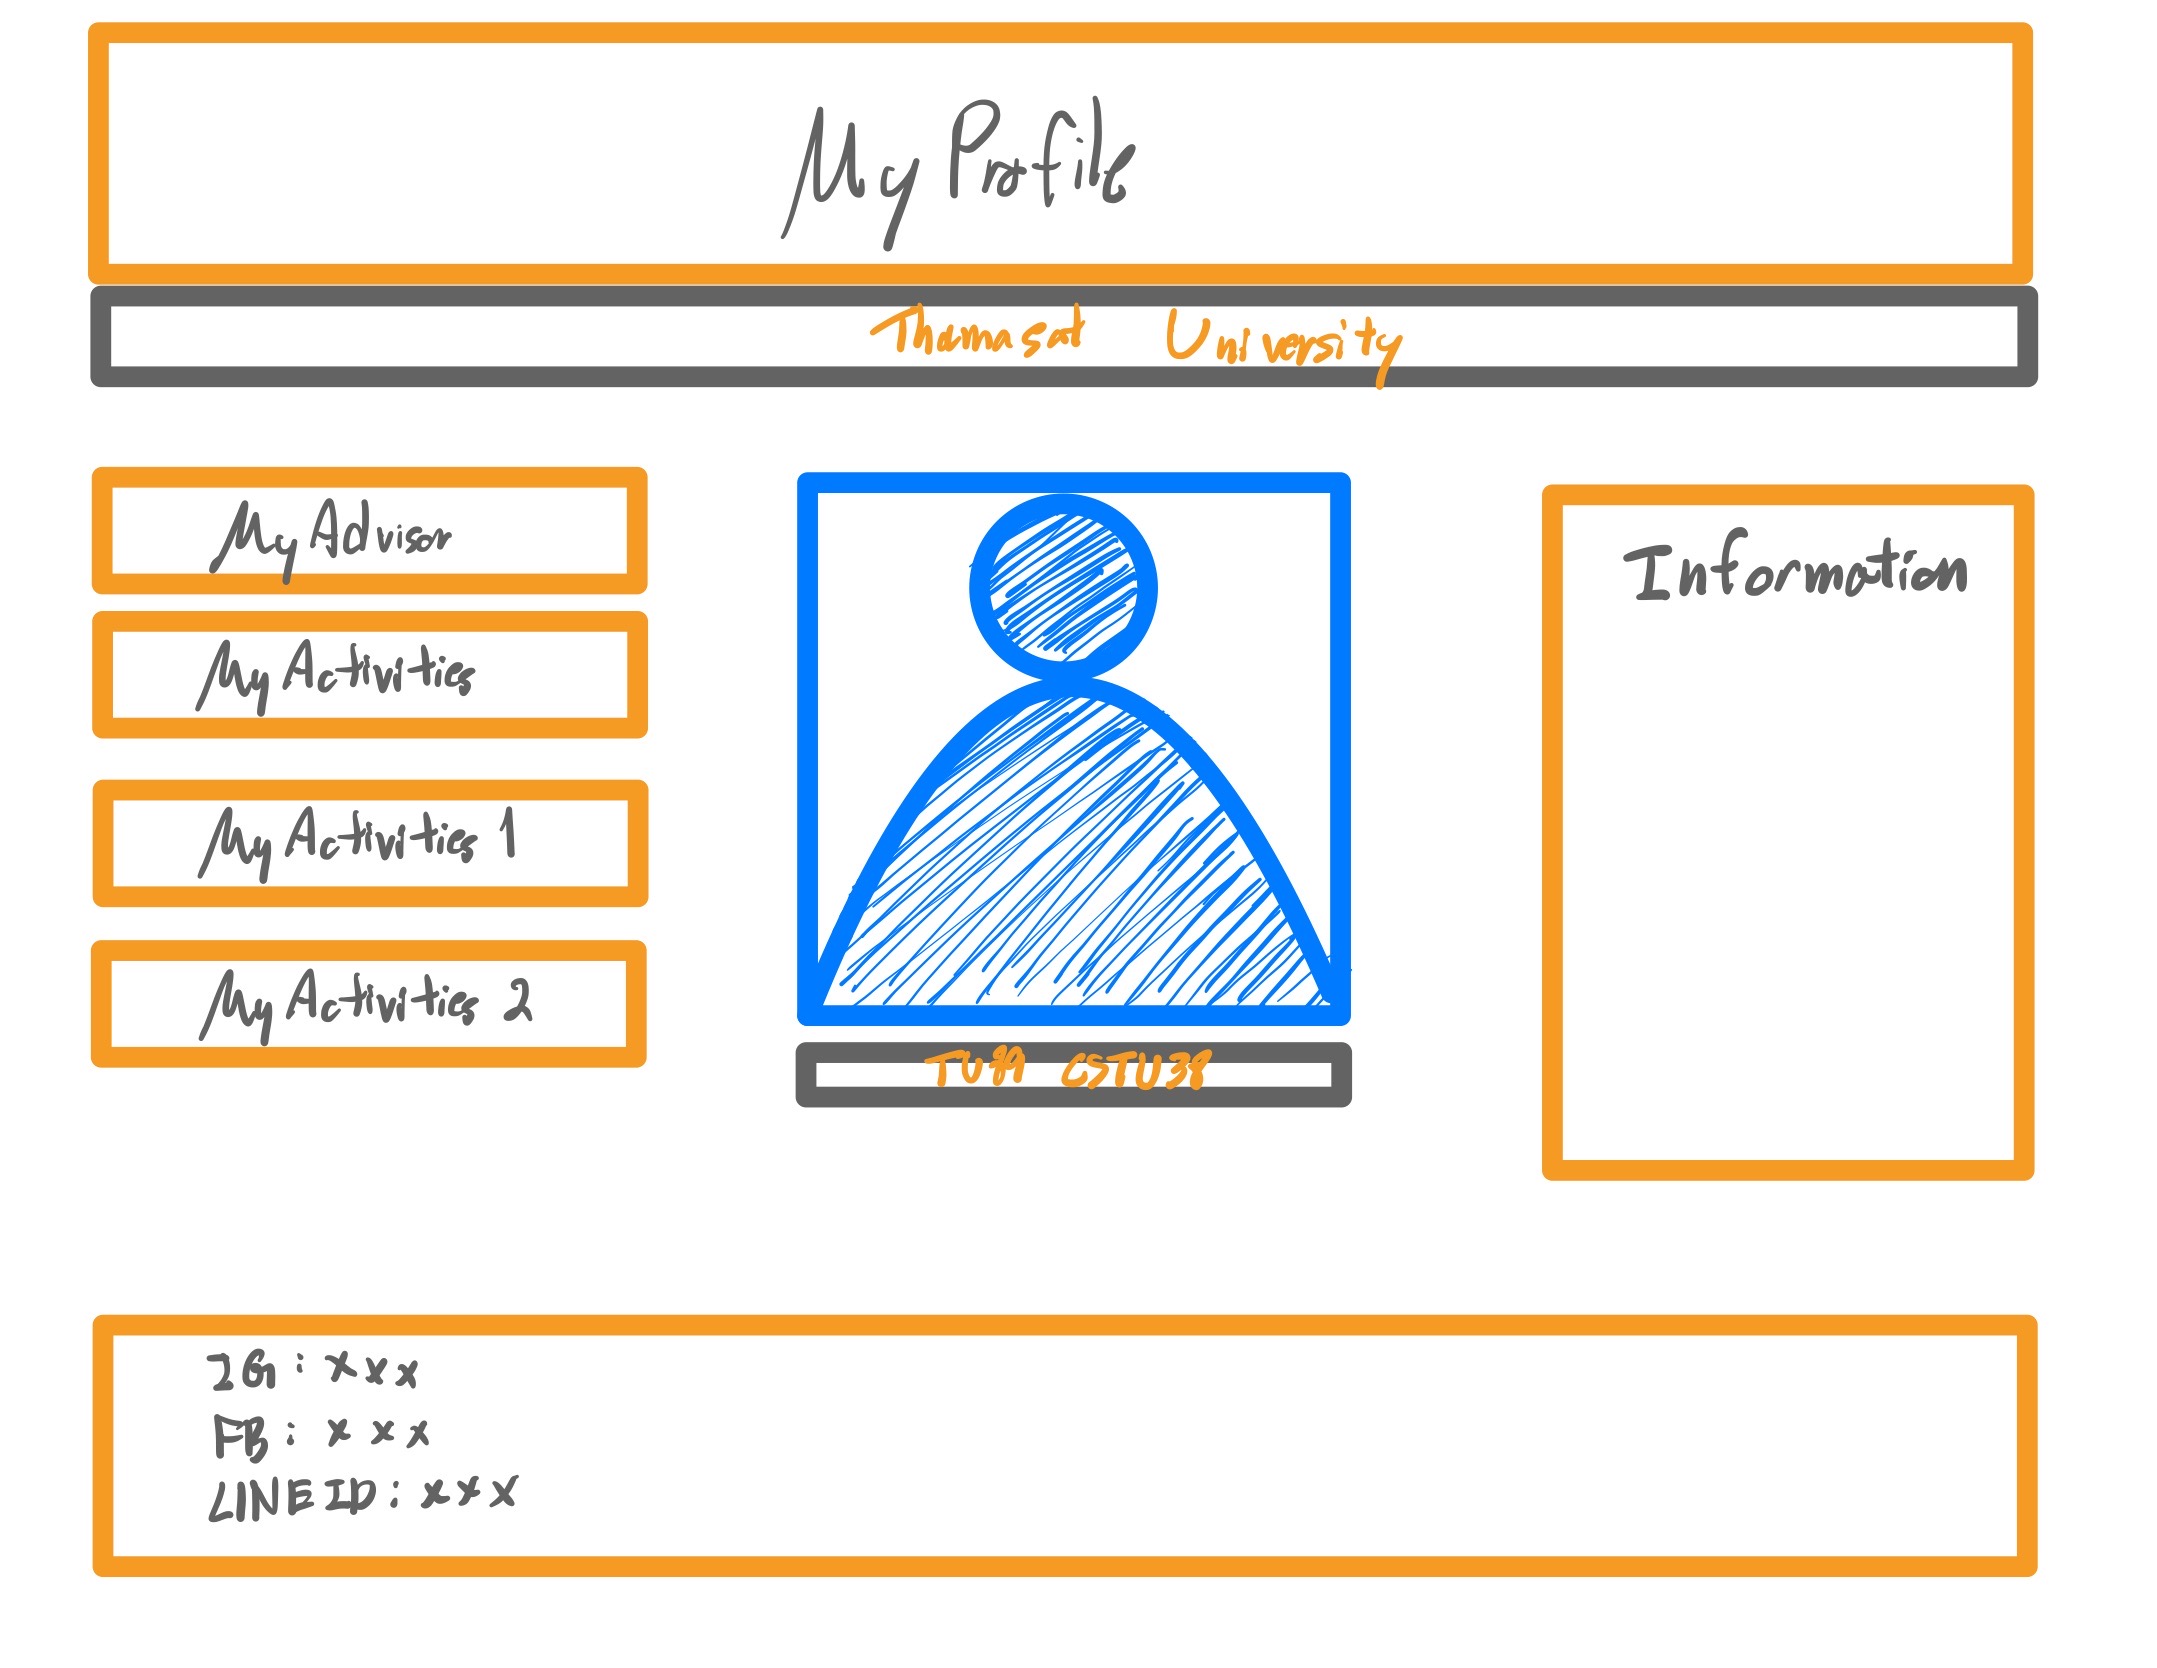 My Profile
Thammasat University
My Advisor
My Activities
My Activities 1
My Activities 2
Information
CSTU38
IG: xxx
FB: xxx
LINE ID: xxx